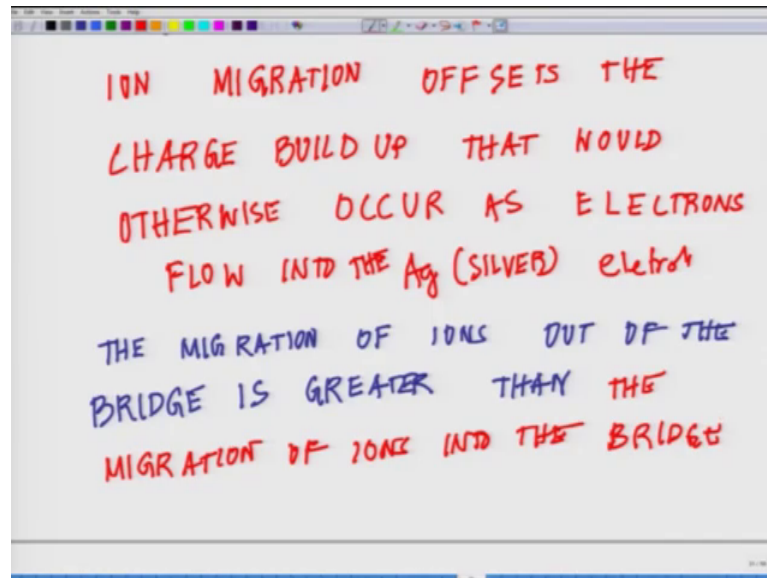 ION MIGRATION OFFSETS THE
CHARGE BUILD UP THAT WOULD
OTHERWISE OCCUR AS ELECTRONS
FLOW INTO THE Ag (SILVER) eletrot
THE MIGRATION OF IONS OUT OF THE
BRIDGE IS GREATER THAN THE
MIGRATION OF IONS INTO THE BRIDGE